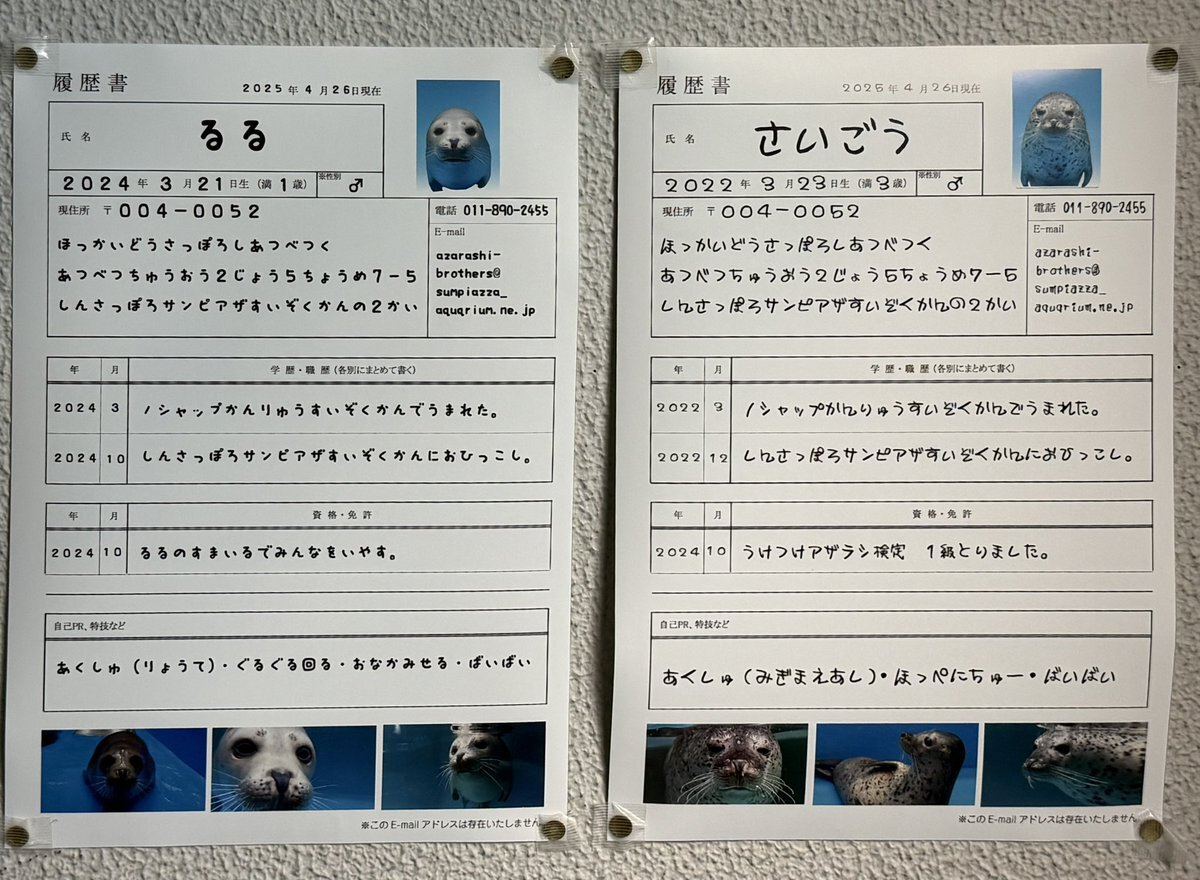 履歴書
2025年4月26日現在
氏名
るる
2024年3月21日生（満1歳）
※性別
♂
現住所 〒004-0052
ほっかいどうさっぽろしあつべつく
あつべつちゅうおう2じょう5ちょうめ7-5
しんさっぽろサンピアザすいぞくかんの2かい
電話 011-890-2455
E-mail
azarashi-
brothers@
sumpiazza_
aquqrium.ne.jp
年 月 学歴・職歴（各別にまとめて書く）
2024 3 ノシャップかんりゅうすいぞくかんでうまれた。
2024 10 しんさっぽろサンピアザすいぞくかんにおひっこし。
年 月 資格・免許
2024 10 るるのすまいるでみんなをいやす。
自己PR、特技など
あくしゅ（りょうて）・ぐるぐる回る・おなかみせる・ばいばい
※このE-mailアドレスは存在いたしません
履歴書
2025年4月26日現在
氏名
さいごう
2022年3月23日生（満3歳）
※性別
♂
現住所 〒004-0052
ほっかいどうさっぽろしあつべつく
あつべつちゅうおう2じょう5ちょうめ7-5
しんさっぽろサンピアザすいぞくかんの2かい
電話 011-890-2455
E-mail
azarashi-
brothers@
sumpiazza_
aquqrium.ne.jp
年 月 学歴・職歴（各別にまとめて書く）
2022 3 ノシャップかんりゅうすいぞくかんでうまれた。
2022 12 しんさっぽろサンピアザすいぞくかんにおひっこし。
年 月 資格・免許
2024 10 うけつけアザラシ検定 1級とりました。
自己PR、特技など
あくしゅ（みぎまえあし）・ほっぺにちゅー・ばいばい
※このE-mailアドレスは存在いたしません